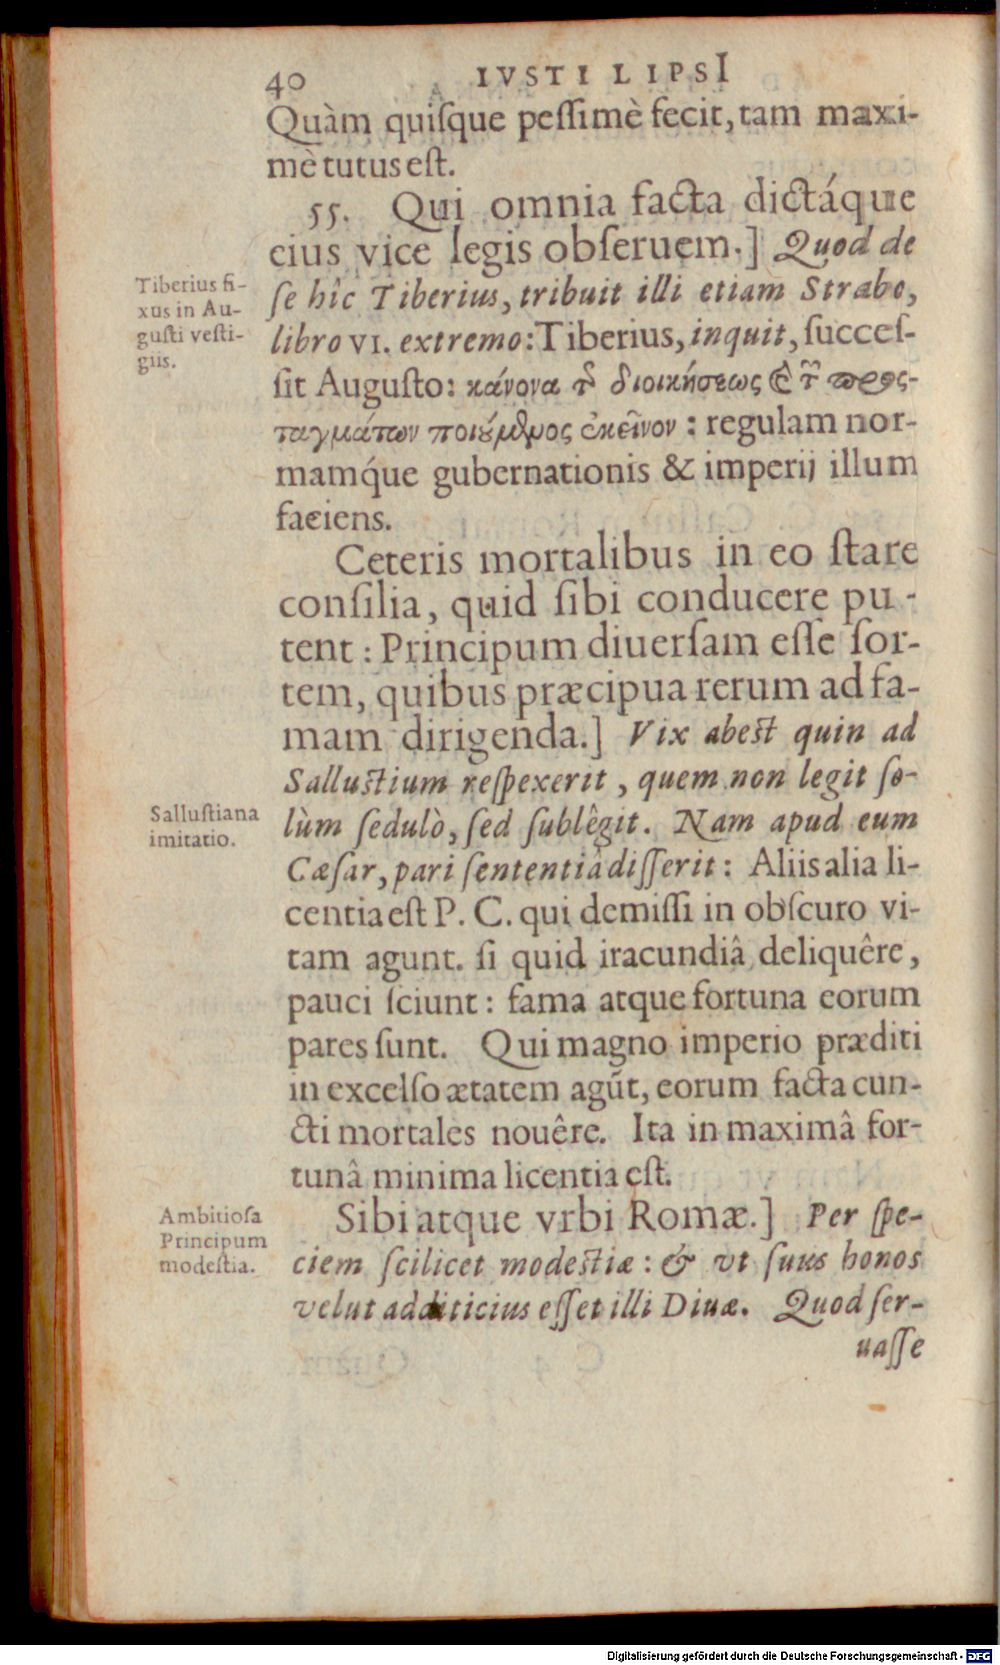 40 IVSTI LIPSI
Quàm quiſque peſſimè fecit, tam maxi-
mè tutus eſt.
55. Qui omnia facta dictáque
eius vice legis obſeruem.] Quod de
Tiberius fi-
xus in Au-
guſti veſti-
giis.
ſe hîc Tiberius, tribuit illi etiam Strabo,
libro VI. extremo: Tiberius, inquit, succeſ-
ſit Auguſto: κάνονα τῆς διοικήσεως καὶ τῶν προς-
ταγμάτων ποιούμενος ἐκεῖνον : regulam nor-
mamq́ue gubernationis & imperij illum
faciens.
Ceteris mortalibus in eo ſtare
conſilia, quid ſibi conducere pu-
tent : Principum diuerſam eſſe ſor-
tem, quibus præcipua rerum ad fa-
mam dirigenda.] Vix abeſt quin ad
Salluſtium reſpexerit, quem non legit ſo-
Salluſtiana
imitatio.
lùm ſedulò, ſed ſublêgit. Nam apud eum
Cæſar, pari ſententiâ diſſerit : Aliis alia li-
centia eſt P. C. qui demiſſi in obſcuro vi-
tam agunt. ſi quid iracundiâ deliquêre,
pauci ſciunt : fama atque fortuna eorum
pares ſunt. Qui magno imperio præditi
in excelſo ætatem agūt, eorum facta cun-
cti mortales nouêre. Ita in maximâ for-
tunâ minima licentia eſt.
Ambitioſa
Principum
modeſtia.
Sibi atque vrbi Romæ.] Per ſpe-
ciem ſcilicet modeſtiæ : & vt ſuus honos
velut additicius eſſet illi Diuæ. Quod ſer-
uaſſe
Digitalisierung gefördert durch die Deutsche Forschungsgemeinschaft - DFG